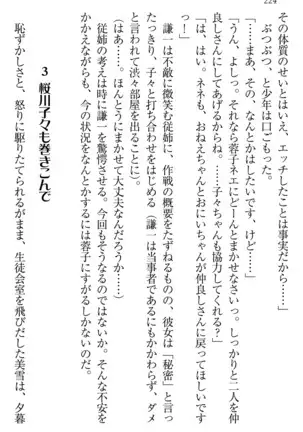 224
その体質のせいとはいえ、エッチしたことは事実だから…
…。ぶつぶつ、と少年は口ごもった。
「だから……、なんとかはしたいです、けど……」
「うん、よしっ。それなら蓉子ネエにどーんとまかせなさいっ。しっかりと二人を仲
良しさんにしてあげるからね。……子々ちゃんも協力してくれる？」
「はい。はいっ。ネネも、おねえちゃんとおにいちゃんが仲良しさんに戻ってほしいです
っ！」
謙一は不敵に微笑む従姉に、作戦の概要をたずねるものの、彼女は「秘密」と言っ
たっきり、子々と打ち合わせをはじめる（謙一は当事者であるにもかかわらず、ダメ
と言われて渋々部屋を出ることに）。
（はあ……。ほんとうにまかせて大丈夫なんだろうか……）
従姉の考えは時に謙一を驚愕させる。今回もそうなるのではないか。そんな不安を
かかえながらも、今の状況をなんとかするには蓉子にすがるしかないのだ。
3　桜川子々も巻きこんで
恥ずかしさと、怒りに駆りたてられるがまま、生徒会室を飛びだした美雪は、夕暮